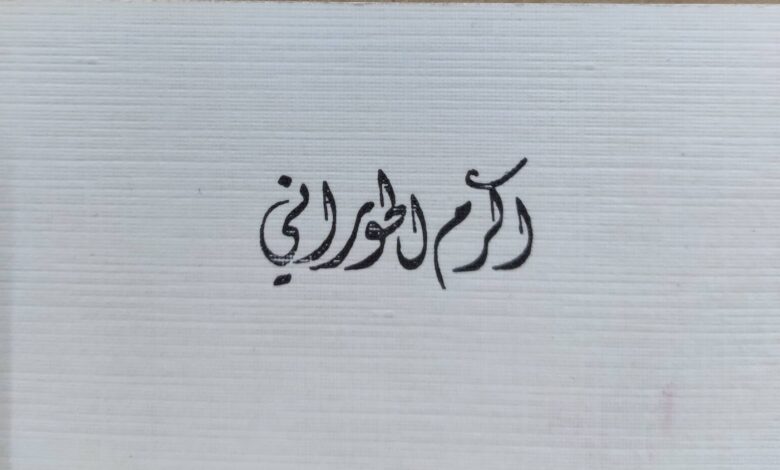 اكرم الحوراني